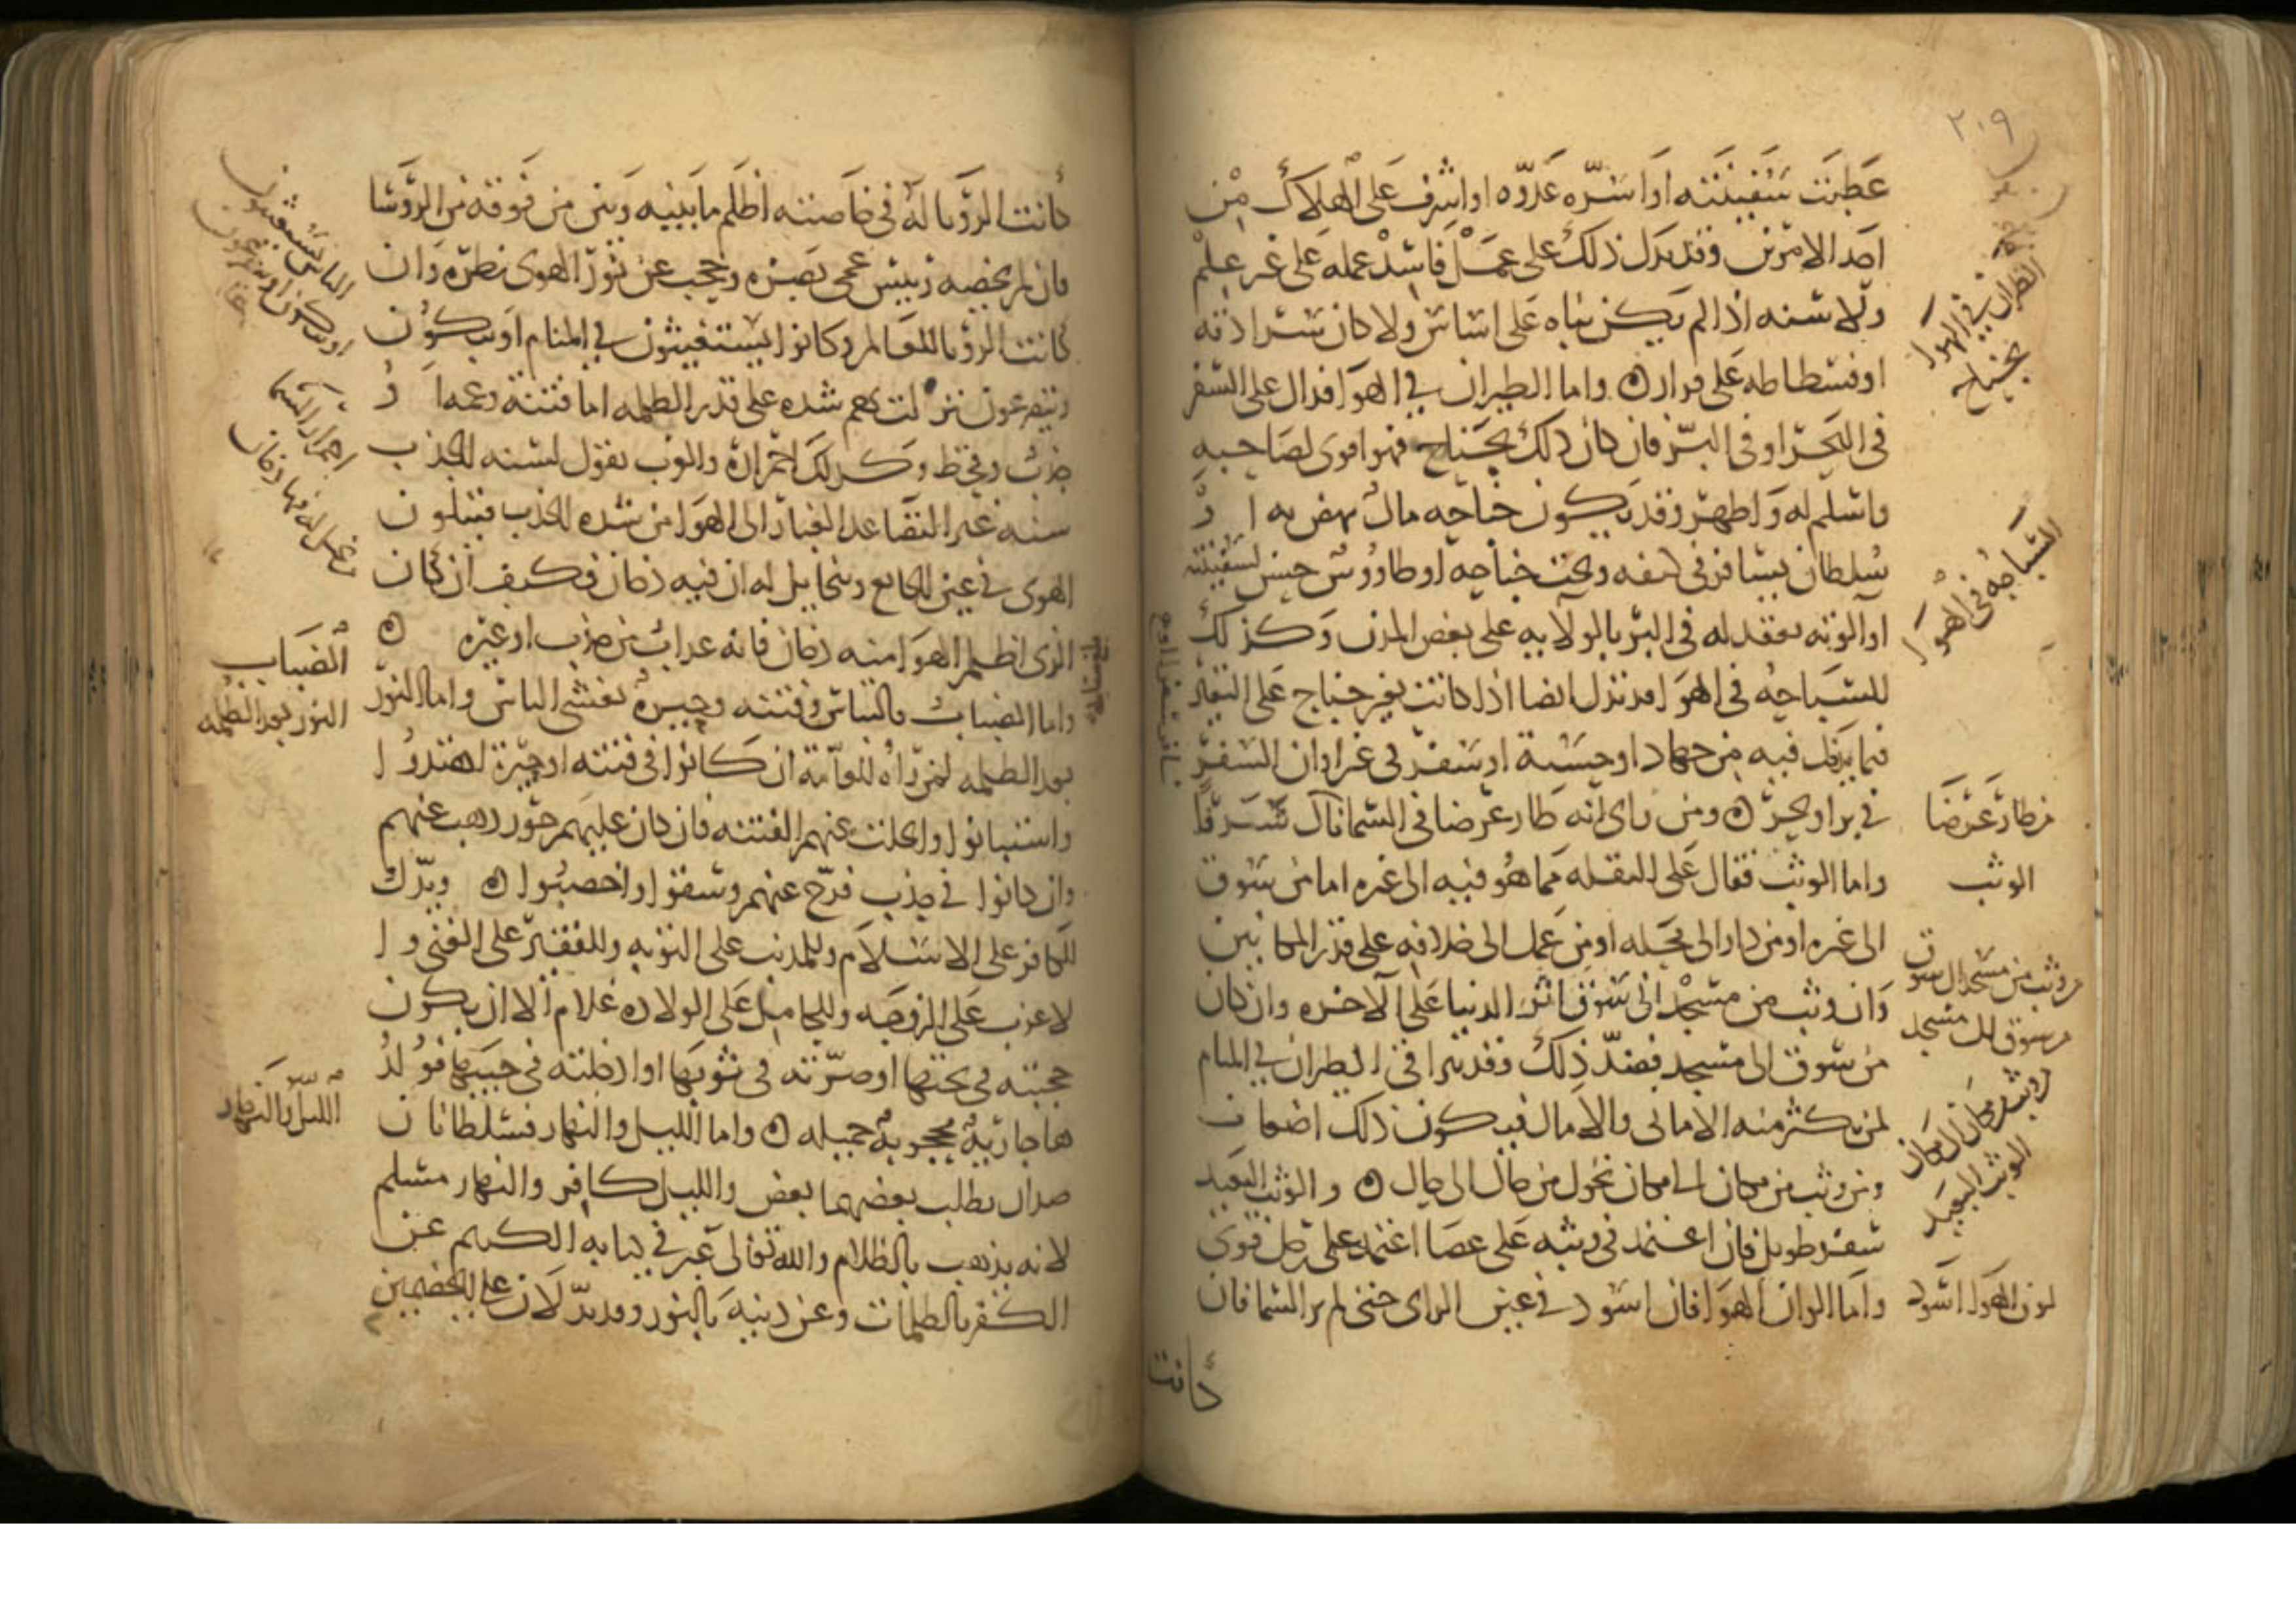 ٢٠٩
عطبت سفينته او اسره عدوه او اشرف على الهلاك من
احد الامرين وقد يدل ذلك على عمل فاسد عمله على غير علم
ولا سنه اذا لم يكن بناه على اساس ولا كان سرادقه
او فسطاطه على قرار ۞ واما الطيران في الهوا فدال على السفر
في البحر او في البر فان كان ذلك بجناح فهو اقوى لصاحبه
واسلم له واظهر وقد يكون جناحه مال ينهض به او
سلطان يسافر في كنفه وتحت جناحه
او الويته تعقد له في البر بالولايه على بعض المدن وكذلك
للسباحه في الهوا قد تدل ايضا اذا كانت بغير جناح على التغرير
فيما يدخل فيه من جهاد او حسبة او سفر في غير اوان السفر
في بر او بحر ۞ ومن راى انه طار عرضا في السما نال شرفا
واما الوثب فدال على النقله مما هو فيه الى غيره اما من سوق
الى غيره او من دار الى محله او من عمل الى خلافه على قدر المكانين
وان وثب من مسجد الى سوق اثر الدنيا على الاخره وان كان
من سوق الى مسجد فضد ذلك وقد يترا في الطيران في المنام
لمن يكثر منه الاماني والامال فيكون ذلك اضغاث
ومن وثب من مكان الى مكان تحول من حال الى حال ۞ والوثب البعيد
سفر طويل فان اعتمد في وثبه على عصا اعتمد على رجل قوى
واما الوان الهوا فان اسود في عين الراى حتى لم ير السما فان
كانت
الطيران في الهوا
بجناح
السباحه في الهوا
من طار عرضا
الوثب
من وثب من مسجد الى سوق
من سوق الى مسجد
من وثب من مكان الى مكان
الوثب البعيد
لون الهوا اسود
كانت الرويا له في خاصته اظلم ما بينه وبين من فوقه من الروسا
فان لم يخصه رييس عمى بصره وحجب عن نور الهوى نظره وان
كانت الرويا للعالم وكانوا يستغيثون في المنام او يبكون
ويتضرعون نزلت بهم شده على قدر الظلمه اما فتنة وغمه او
جدب وقحط وكذلك احمراره والعرب تقول لسنه الجدب
سنه غبرا لتصاعد الغبار الى الهوا من شده الجدب فيتلون
الهوى في عين الجايع ويتخايل له ان فيه دخان فكيف ان كان
الذى اظلم الهوا منه دخان فانه عذاب من جدب او غيره ۞
واما الضباب فالتباس وفتنه وحيره تغشى الناس واما النور
بعد الظلمه لمن راه للعامة ان كانوا في فتنه او حيرة اهتدوا
واستبانوا وانجلت عنهم الفتنه فان كان عليهم جور ذهب عنهم
وان كانوا في جدب فرج عنهم وسقوا واخصبوا ۞ ويدل
للكافر على الاسلام وللمذنب على التوبه وللفقير على الغنى وا
لاعزب على الزوجه وللحامل على الولاده غلام الا ان يكون
حجبته في تختها او صرته في ثوبها او ادخلته في جيبها فولد
ها جارية محجوبة جميله ۞ واما الليل والنهار فسلطانان
ضدان يطلب بعضهما بعض والليل كافر والنهار مسلم
لانه يذهب بالظلام والله تعالى عبر في كتابه الكريم عن
الكفر بالظلمات وعن دينه بالنور وقد يدلان على الخصمين
الناس يستغيثون
احمرار السما
الضباب
النور بعد الظلمه
الليل والنهار